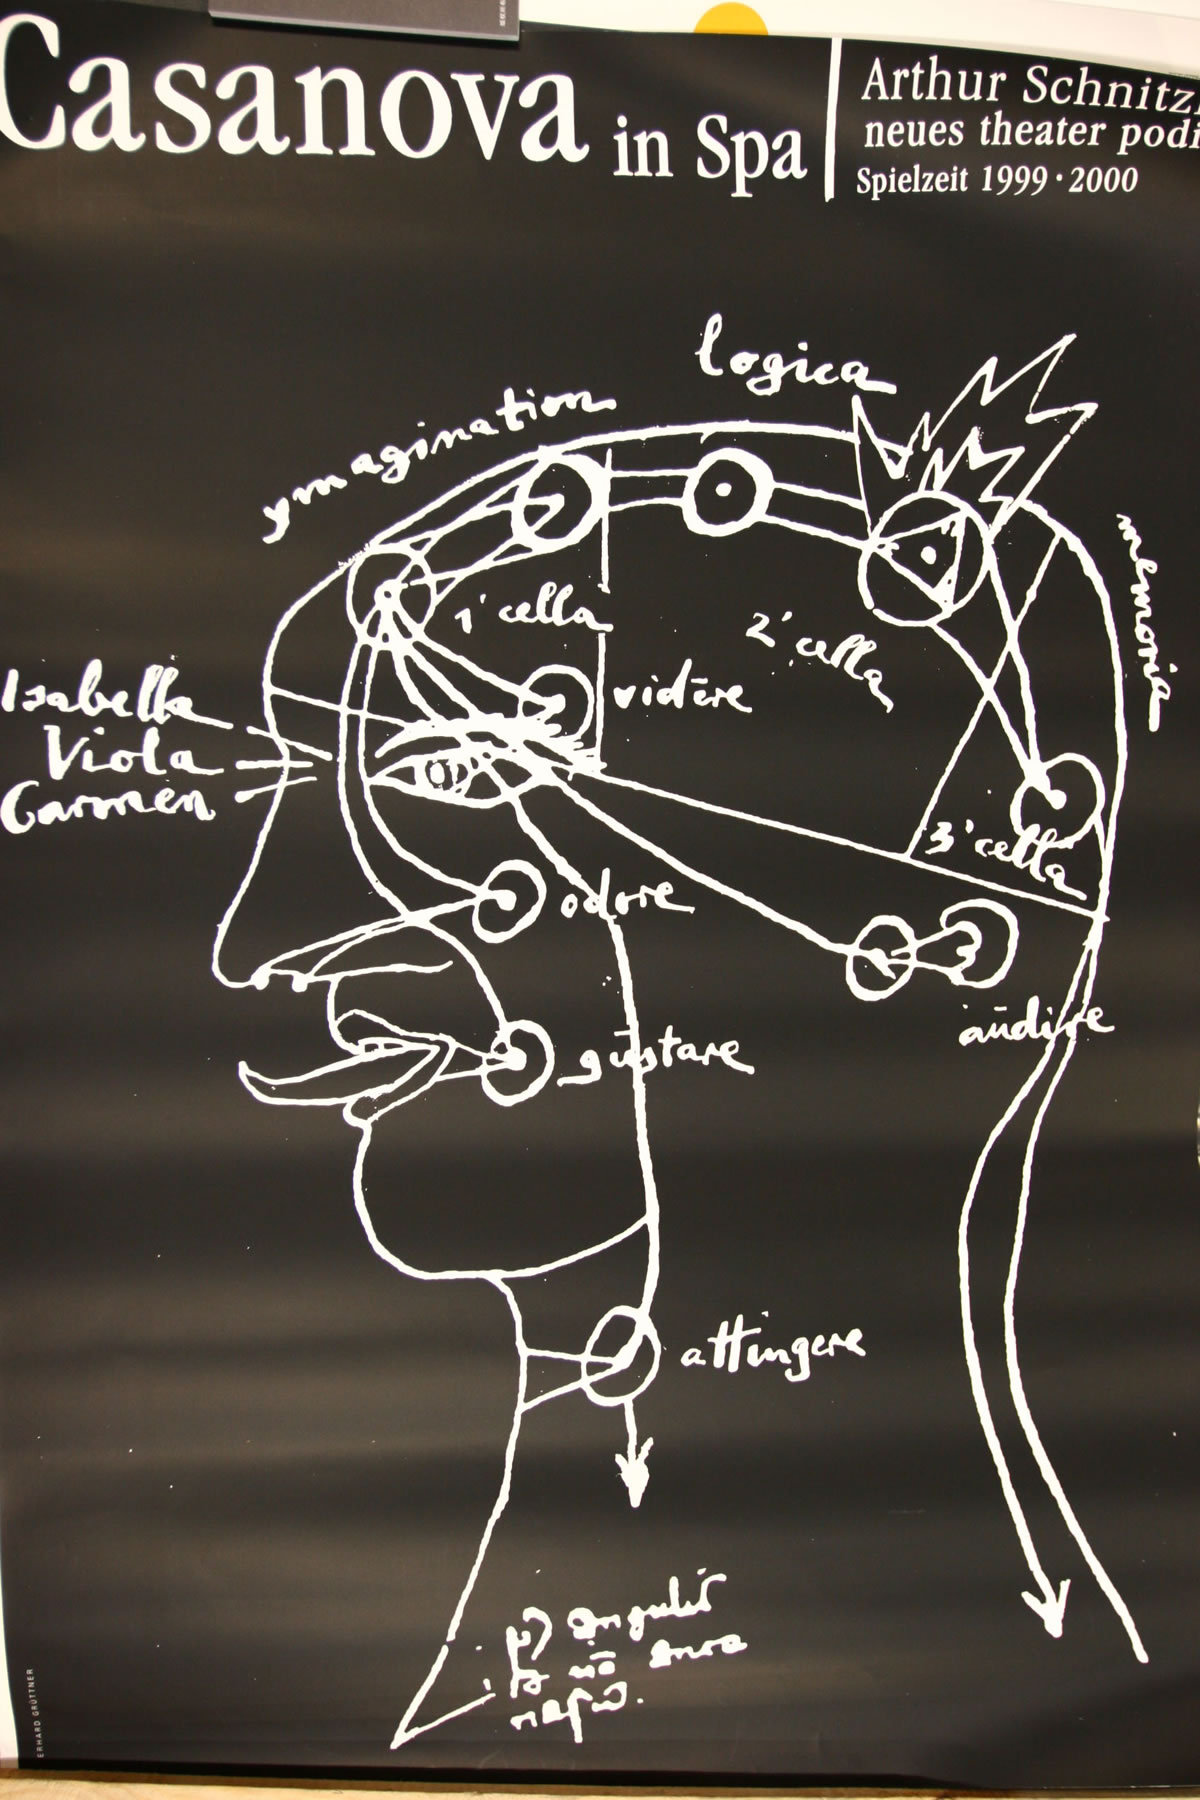 Casanova in Spa
Arthur Schnitz
neues theater podi
Spielzeit 1999 · 2000
logica
ymagination
memoria
1' cella
2' cella
Isabella
Viola
Carmen
vidēre
3' cella
odore
audire
gustare
attingere
ERHARD GRÜTTNER